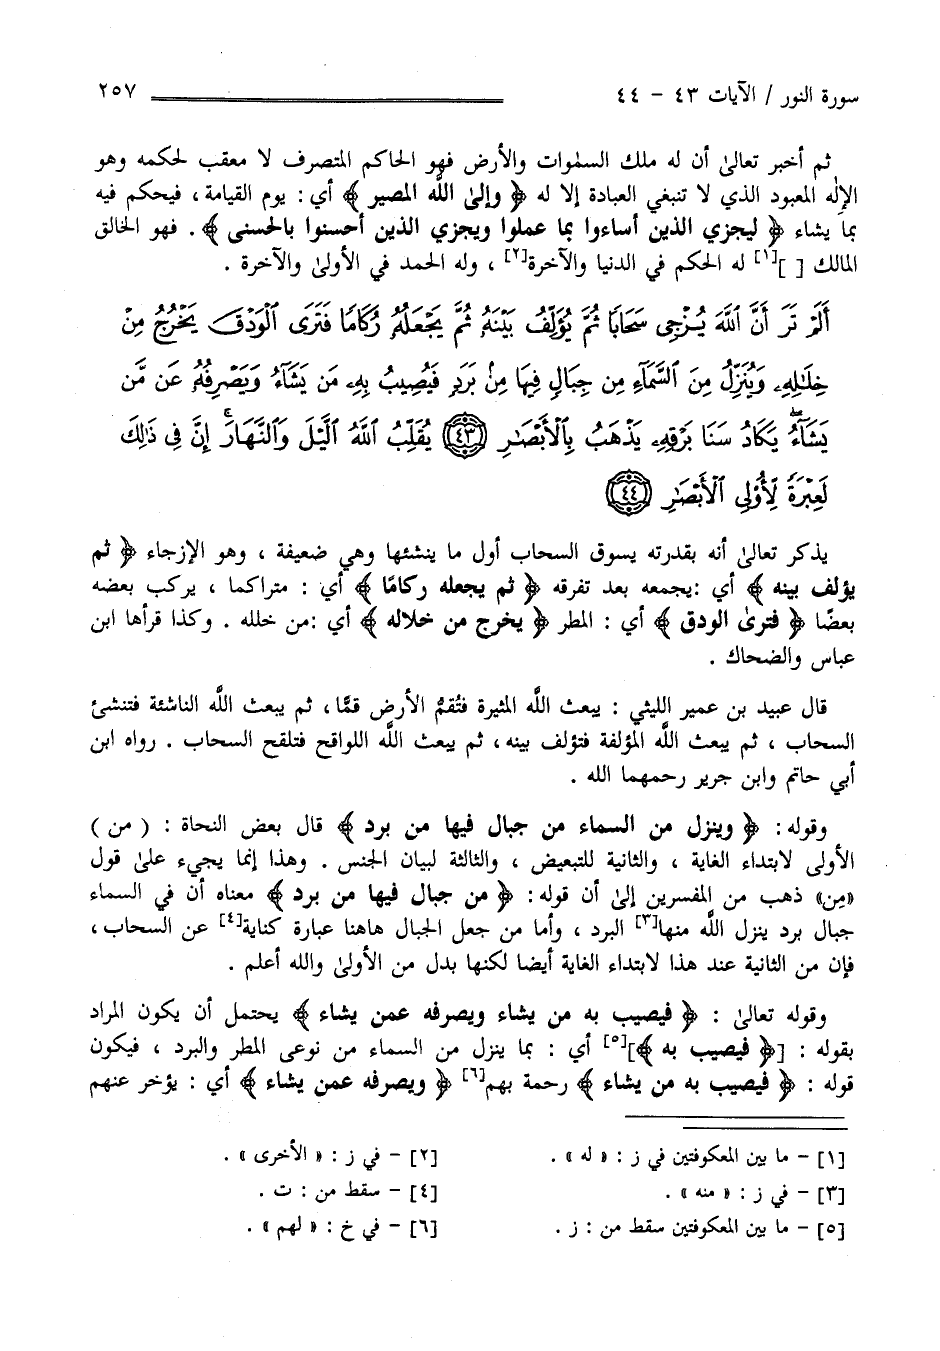 سورة النور / الآيات ٤٣ - ٤٤ ٢٥٧
ثم أخبر تعالىٰ أن له ملك السمٰوات والأرض فهو الحاكم المتصرف لا معقب لحكمه وهو
الإلٰه المعبود الذي لا تنبغي العبادة إلا له ﴿ وإلىٰ اللَّه المصير ﴾ أي : يوم القيامة ، فيحكم فيه
بما يشاء ﴿ ليجزي الذين أساءوا بما عملوا ويجزي الذين أحسنوا بالحسنى ﴾ . فهو الخالق
المالك [ ][١] له الحكم في الدنيا والآخرة[٢] ، وله الحمد في الأولىٰ والآخرة .
أَلَمْ تَرَ أَنَّ ٱللَّهَ يُزْجِى سَحَابًا ثُمَّ يُؤَلِّفُ بَيْنَهُۥ ثُمَّ يَجْعَلُهُۥ رُكَامًا فَتَرَى ٱلْوَدْقَ يَخْرُجُ مِنْ
خِلَٰلِهِۦ وَيُنَزِّلُ مِنَ ٱلسَّمَآءِ مِن جِبَالٍ فِيهَا مِنۢ بَرَدٍ فَيُصِيبُ بِهِۦ مَن يَشَآءُ وَيَصْرِفُهُۥ عَن مَّن
يَشَآءُ ۖ يَكَادُ سَنَا بَرْقِهِۦ يَذْهَبُ بِٱلْأَبْصَٰرِ ﴿٤٣﴾ يُقَلِّبُ ٱللَّهُ ٱلَّيْلَ وَٱلنَّهَارَ ۚ إِنَّ فِى ذَٰلِكَ
لَعِبْرَةً لِّأُو۟لِى ٱلْأَبْصَٰرِ ﴿٤٤﴾
يذكر تعالىٰ أنه بقدرته يسوق السحاب أول ما ينشئها وهي ضعيفة ، وهو الإزجاء ﴿ ثم
يؤلف بينه ﴾ أي :يجمعه بعد تفرقه ﴿ ثم يجعله ركامًا ﴾ أي : متراكما ، يركب بعضه
بعضًا ﴿ فترىٰ الودق ﴾ أي : المطر ﴿ يخرج من خلاله ﴾ أي :من خلله . وكذا قرأها ابن
عباس والضحاك .
قال عبيد بن عمير الليثي : يبعث اللَّه المثيرة فتُقمُّ الأرض قمًّا ، ثم يبعث اللَّه الناشئة فتنشئ
السحاب ، ثم يبعث اللَّه المؤلفة فتؤلف بينه ، ثم يبعث اللَّه اللواقح فتلقح السحاب . رواه ابن
أبي حاتم وابن جرير رحمهما الله .
وقوله : ﴿ وينزل من السماء من جبال فيها من برد ﴾ قال بعض النحاة : ( من )
الأولى لابتداء الغاية ، والثانية للتبعيض ، والثالثة لبيان الجنس . وهذا إنما يجيء علىٰ قول
«مِن» ذهب من المفسرين إلىٰ أن قوله : ﴿ من جبال فيها من برد ﴾ معناه أن في السماء
جبال برد ينزل اللَّه منها[٣] البرد ، وأما من جعل الجبال هاهنا عبارة كناية[٤] عن السحاب ،
فإن من الثانية عند هذا لابتداء الغاية أيضا لكنها بدل من الأولىٰ والله أعلم .
وقوله تعالىٰ : ﴿ فيصيب به من يشاء ويصرفه عمن يشاء ﴾ يحتمل أن يكون المراد
بقوله : [﴿ فيصيب به ﴾][٥] أي : بما ينزل من السماء من نوعى المطر والبرد ، فيكون
قوله : ﴿ فيصيب به من يشاء ﴾ رحمة بهم[٦] ﴿ ويصرفه عمن يشاء ﴾ أي : يؤخر عنهم
[١] - ما بين المعكوفتين في ز : « له » . [٢] - في ز : « الأخرى » .
[٣] - في ز : « منه » . [٤] - سقط من : ت .
[٥] - ما بين المعكوفتين سقط من : ز . [٦] - في خ : « لهم » .